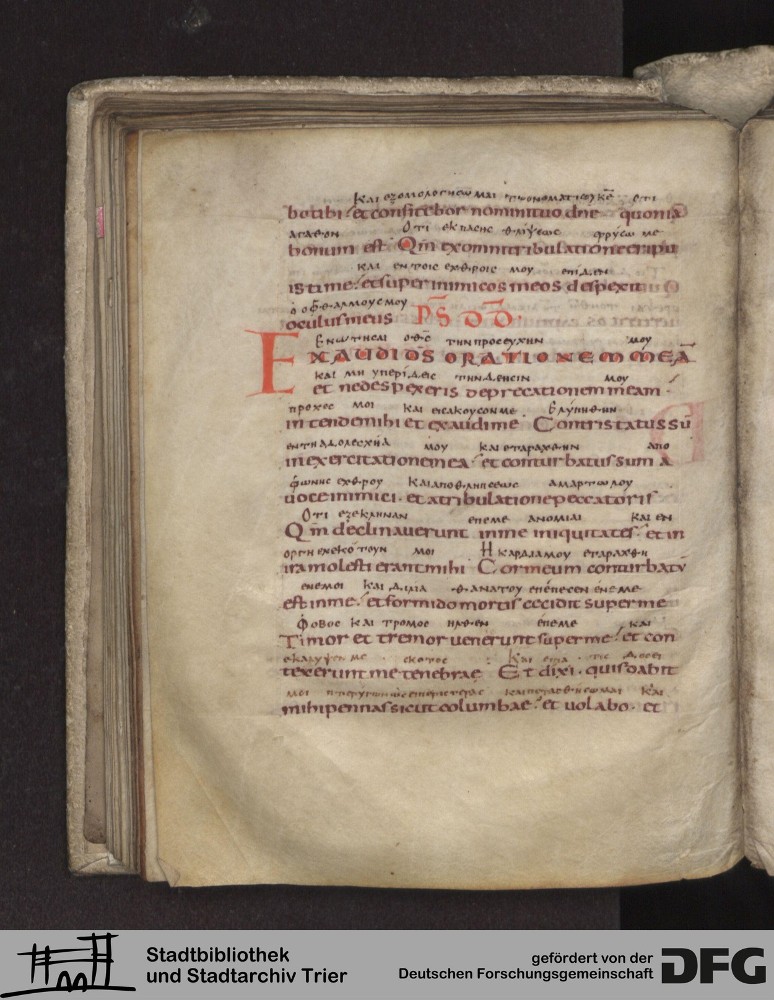 και εξομολογησωμαι τωονοματισουκε οτι
botibi et confitebor nominituo dne quoniā
αγαθον Οτι εκπασης θλιψεως ερυσω με
bonum est Qm exomnitribulationeeripu
και εντοις εχθροις μου επιδεν
istime et super inimicos meos despexit
ο οφθαλμουςμου
oculusmeus PS DD
Ενωτησαι οθς τηνπροσευχην μου
EXAUDIDS ORATIONEMMEĀ
και μη υπεριδεις τηνδεησιν μου
et nedespexeris deprecationemmeam
προχες μοι και εισακουσονμε Ελυπηθην
intendemihi et exaudime Contristatussū
εντηαδολεσχηα μου καιεταραχθην απο
inexercitationemea et conturbatussum a
φωνης εχθρου Καιαποθλησεως αμαρτωλου
uoceinimici et atribulationepeccatoris
Οτι εξεκληναν επεμε ανομιαι και εν
Qm declinauerunt inme iniquitates et in
οργηενεκοτουν μοι Η καρδιαμου εταραχθη
iramolesti erantmihi Cormeum conturbatū
ενεμοι και διλια θανατου επεπεσεν ενεμε
estinme et formidomortis cecidit superme
Φοβος και τρομος ηλθεν επεμε και
Timor et tremor uenerunt superme et con
εκαλυψεν με σκοτος Και ειπα τις δοσει
texeruntmetenebrae Et dixi quisdabit
μοι πτερυγαςωσειπεριστερας καιπετασθησωμαι και
mihipennassicutcolumbae et uolabo et
Stadtbibliothek
und Stadtarchiv Trier
gefördert von der
Deutschen Forschungsgemeinschaft
DFG